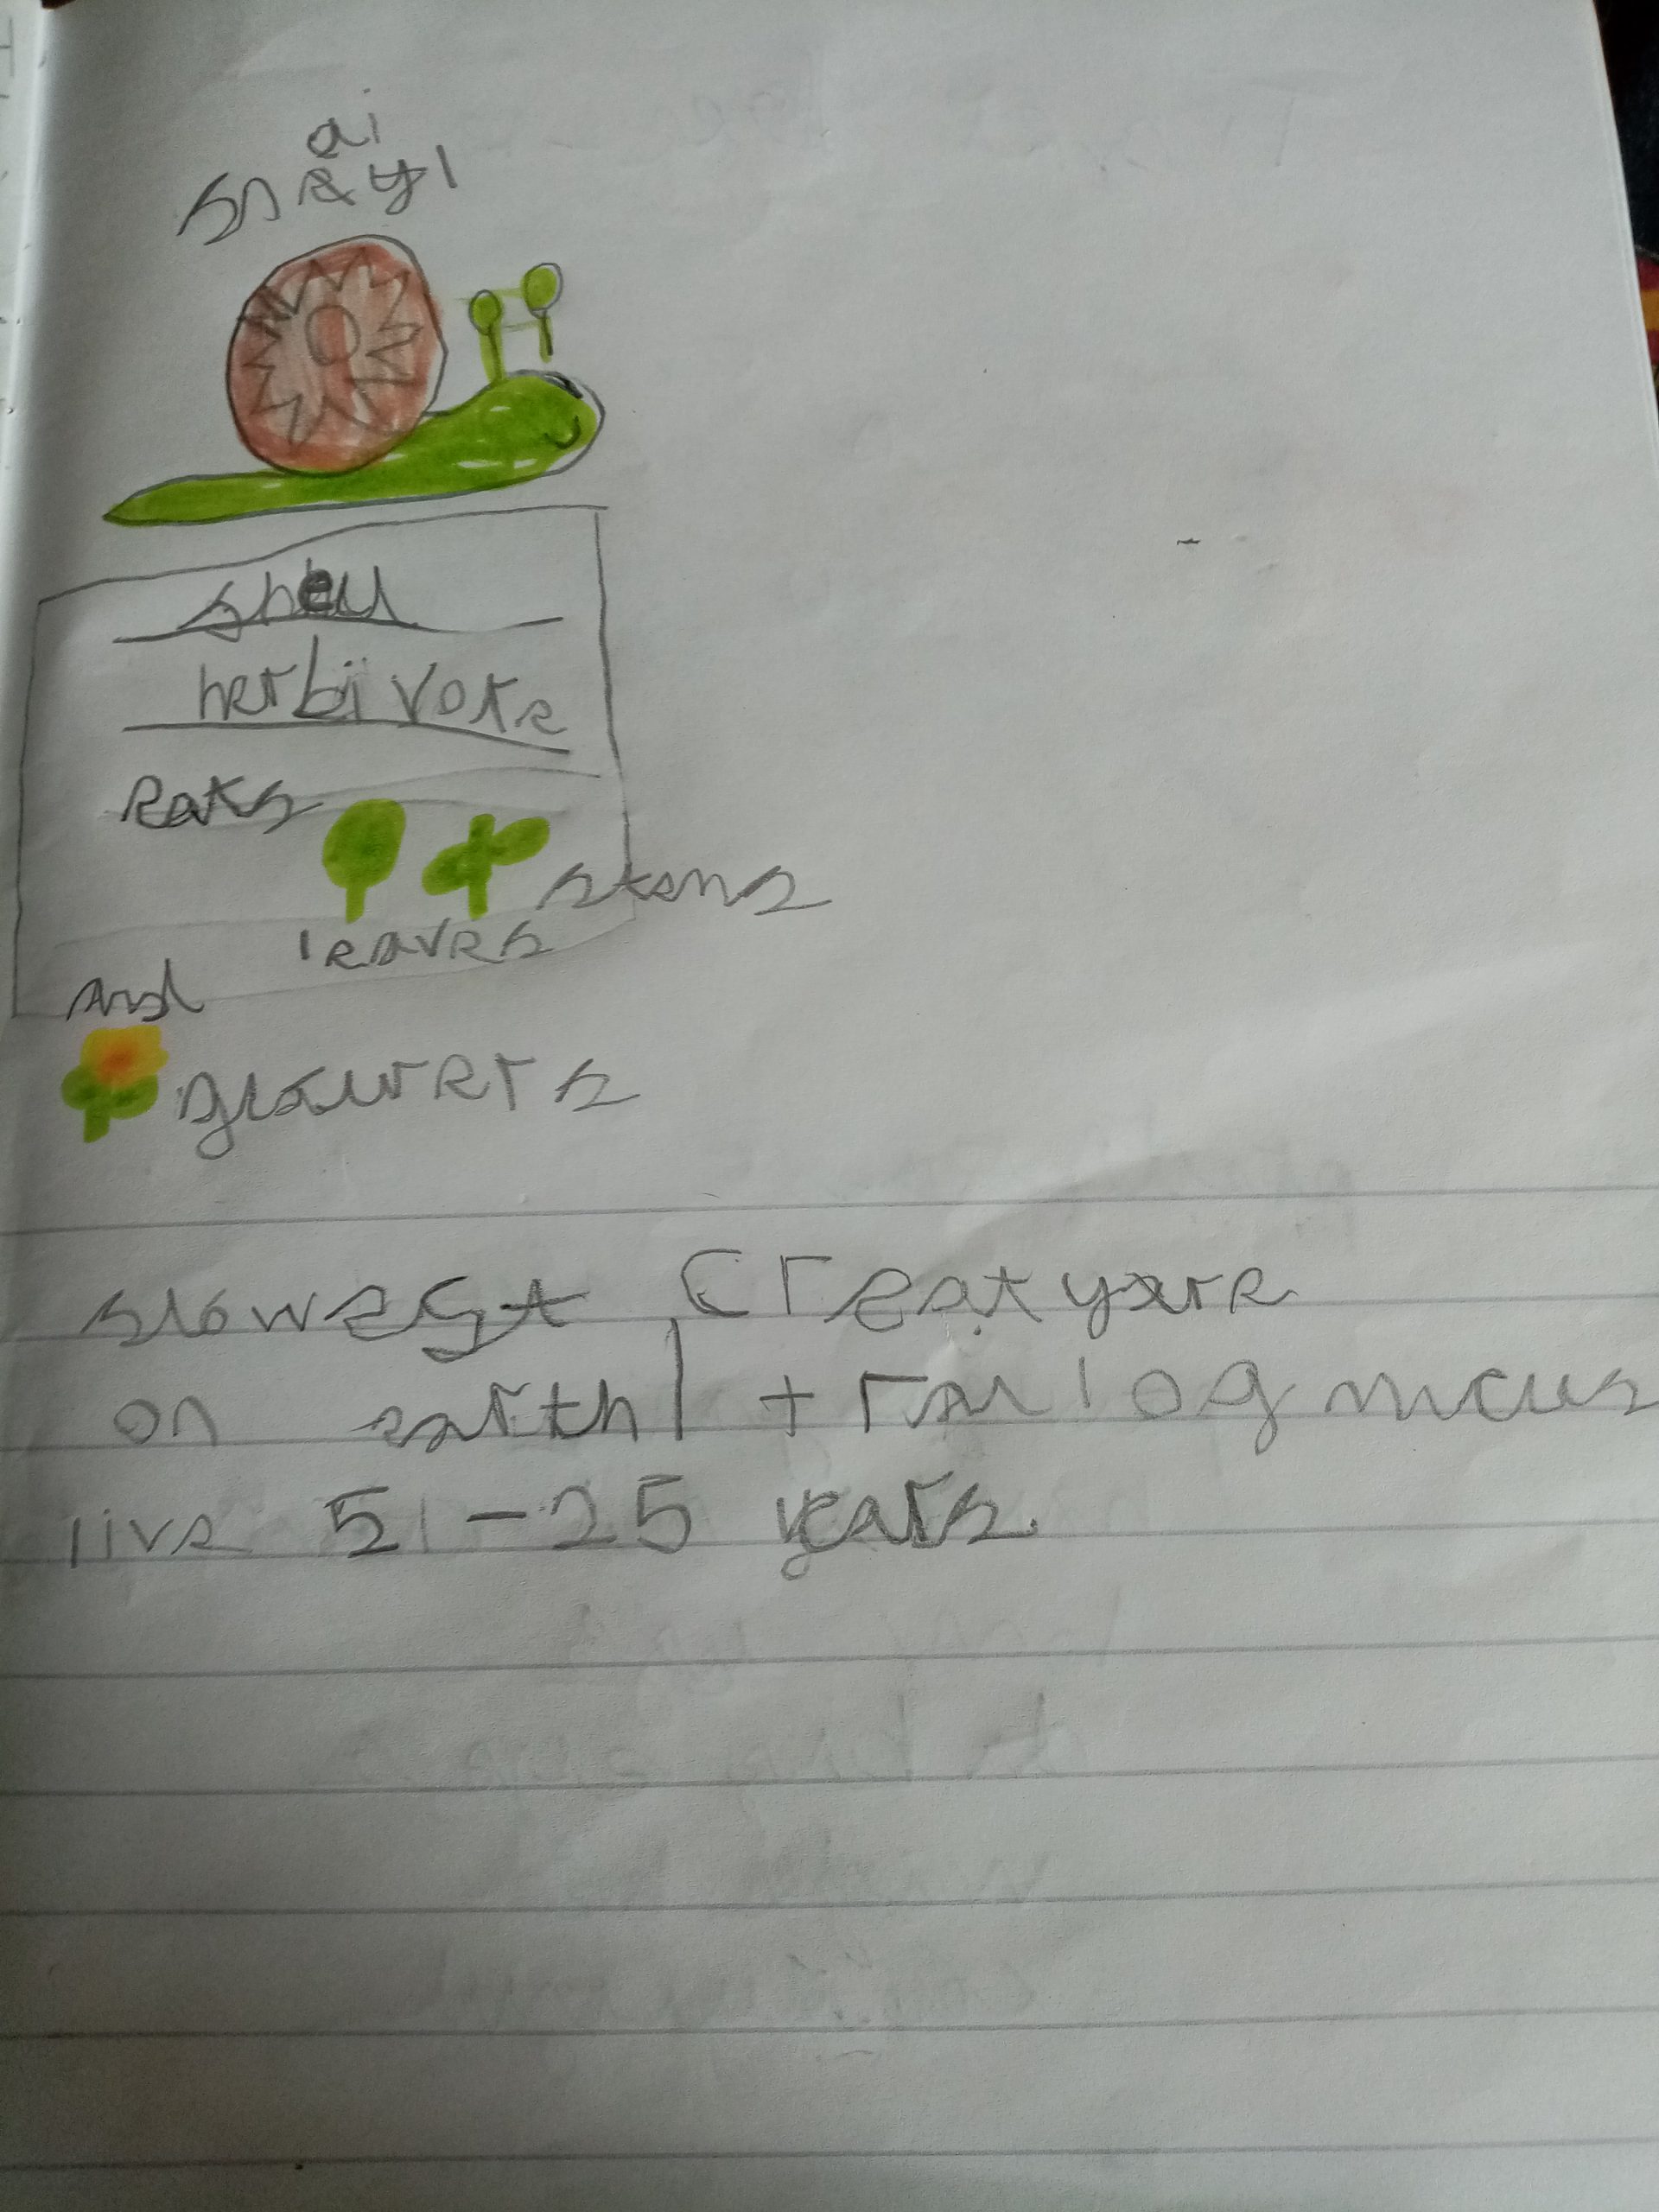 ai
snayl
shell
herbivore
eats
stems
leaves
and
flowers
slowest creatyure
on earth
live 51-25 years.